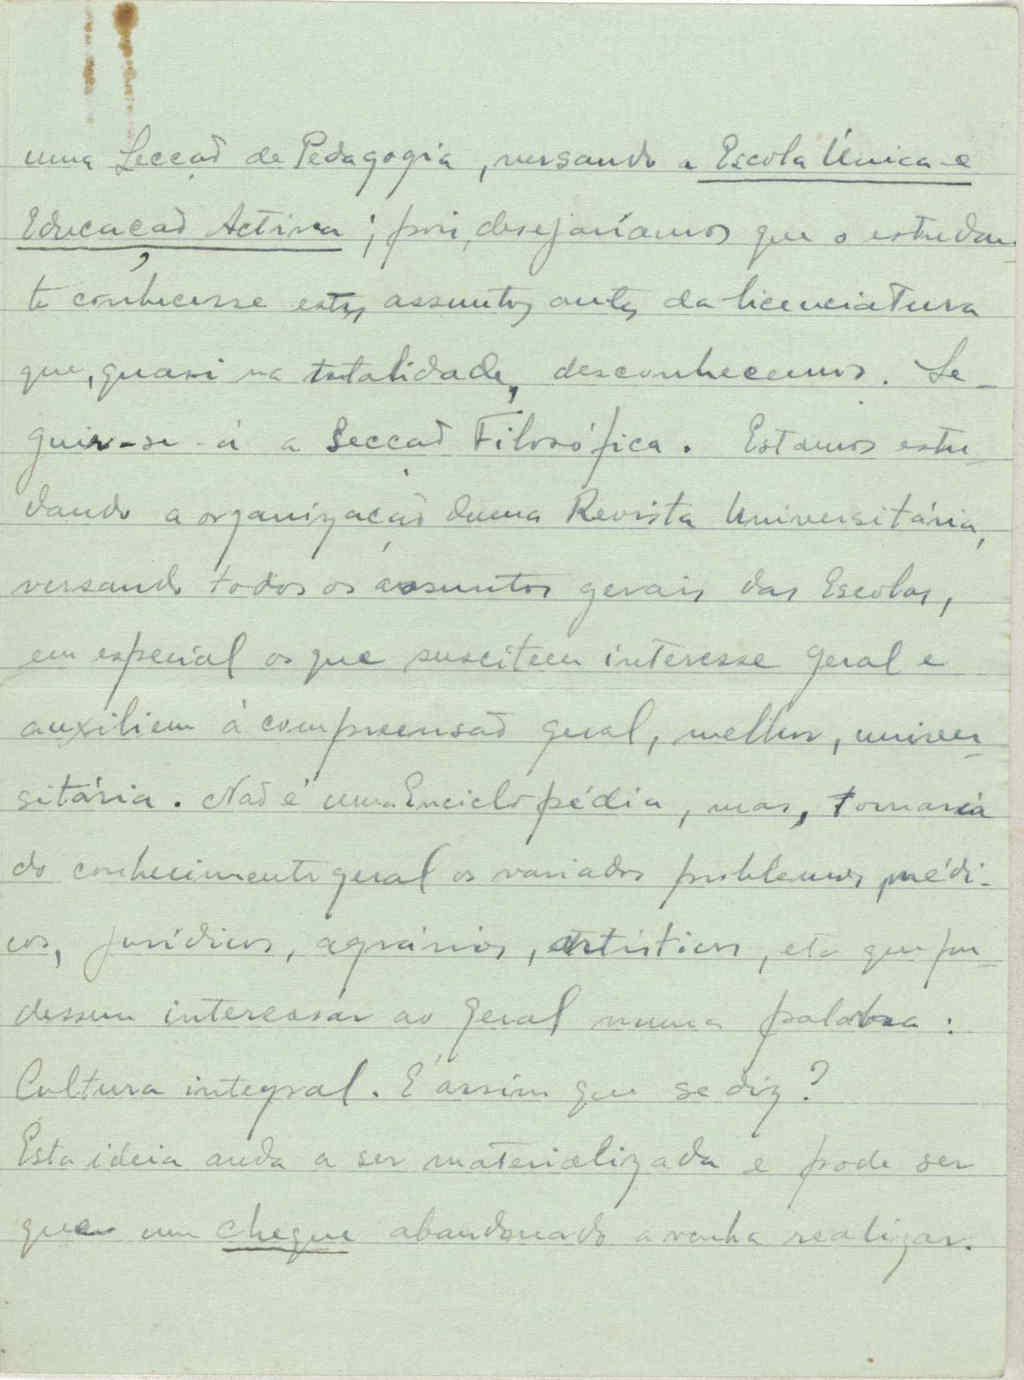 uma Secção de Pedagogia, versando a Escola Única e
Educação Activa; pois, desejaríamos que o estudan-
te conhecesse estes assuntos antes da licenciatura
que, quasi na totalidade, desconhecemos. Se-
guir-se-á a Secção Filosófica. Estamos estu-
dando a organização duma Revista Universitária,
versando todos os assuntos gerais das Escolas,
em especial os que suscitem interesse geral e
auxiliem à compreensão geral, melhor, univer-
sitária. Não é uma Enciclopédia, mas, tomaria
do conhecimento geral os variados problemas, médi-
cos, jurídicos, agrários, artísticos, etc que pu-
dessem interessar ao geral numa palavra:
Cultura integral. É assim que se diz?
Esta ideia anda a ser materializada e pode ser
que um cheque abandonado a venha realizar.